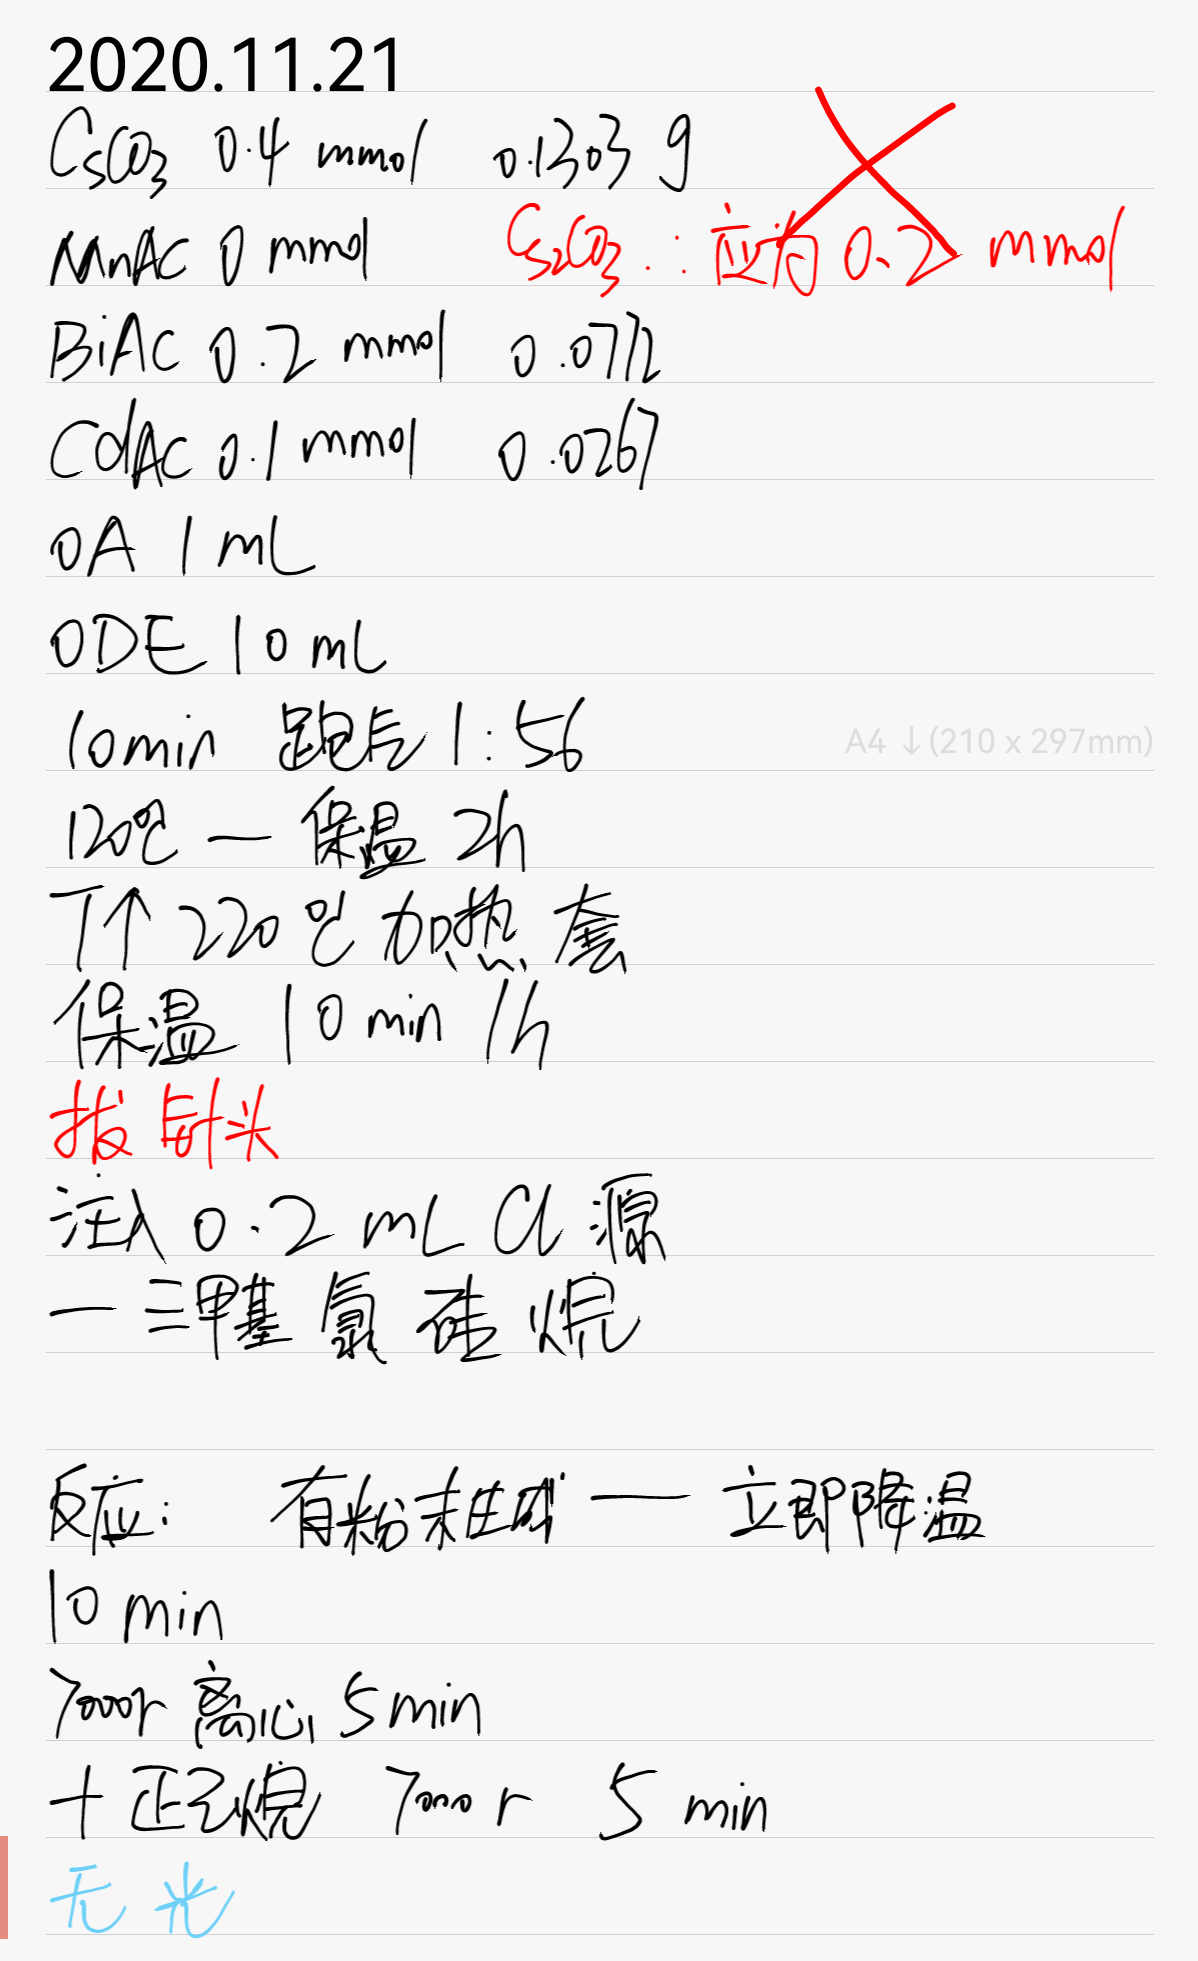 2020.11.21
CsCO3 0.4 mmol 0.1303 g
MnAC 0 mmol Cs2CO3 ∴应为 0.2 mmol
BiAC 0.2 mmol 0.0772
CdAC 0.1 mmol 0.0267
OA 1 mL
ODE 10 mL
10min 跑气 1:56
A4 ↓(210 x 297mm)
120℃ — 保温 2h
T↑ 220℃ 加热套
保温 10 min 1h
拔针头
注入 0.2 mL Cl 源
— 三甲基氯硅烷
反应: 有粉末生成 — 立即降温
10 min
7000r 离心 5 min
+ 正己烷 7000 r 5 min
无光